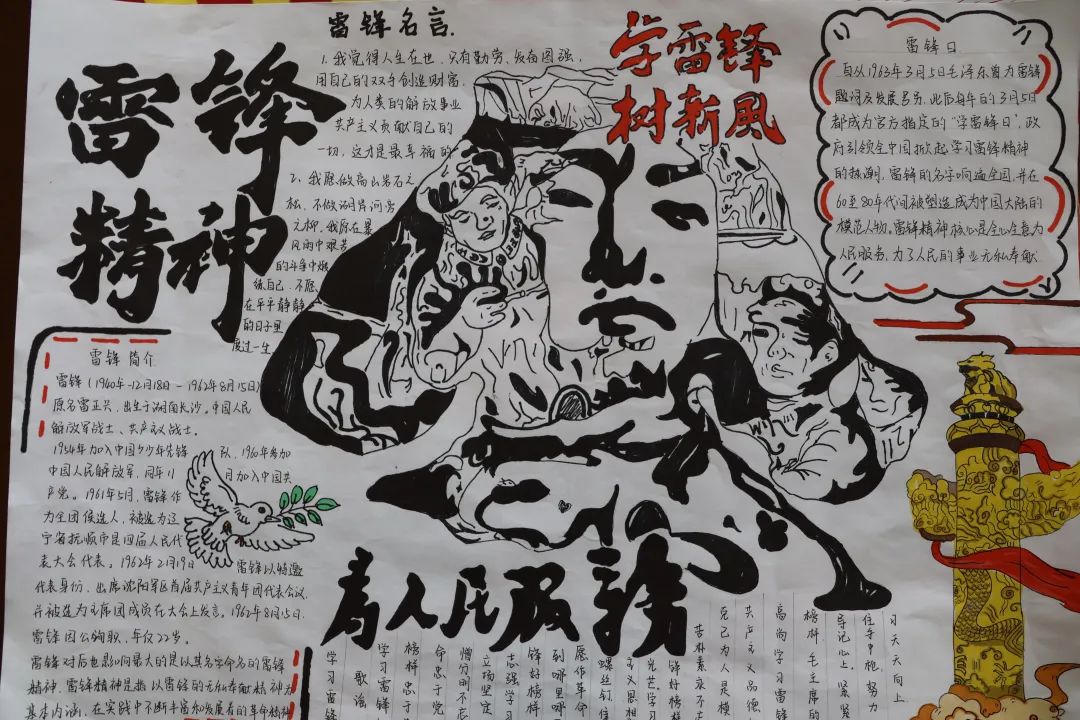 雷锋
精神
雷锋名言.
1. 我觉得人生在世, 只有勤劳, 发奋图强,
用自己的双手创造财富,
为人类的解放事业
共产主义贡献自己的
一切, 这才是最幸福的
2. 我愿做高山岩石之
松, 不做湖岸河旁
之柳, 我愿在暴
风雨中艰苦
的斗争中煅
练自己, 不愿
在平平静静
的日子里
度过一生.
学雷锋
树新風
雷锋日
自从1963年3月5日毛泽东曾为雷锋
题词及发展号召, 此后每年的3月5日
都成为官方指定的“学雷锋日”, 政
府引领全中国掀起学习雷锋精神
的热潮, 雷锋的名字响遍全国, 并在
60至80年代间被塑造成为中国大陆的
模范人物。雷锋精神核心是全心全意为
人民服务, 为了人民的事业无私奉献.
雷锋 简介.
雷锋 (1940年-12月18日-1962年8月15日)
原名雷正兴, 出生于湖南长沙。中国人民
解放军战士、共产主义战士。
1954年加入中国少年先锋队, 1960年参加
中国人民解放军, 同年11月加入中国共
产党。1961年5月, 雷锋作
为全团候选人, 被选为辽
宁省抚顺市第四届人民代
表大会代表。1962年2月19日 雷锋以特邀
代表身份, 出席沈阳军区首届共产主义青年团代表会议,
并被选为主席团成员在大会上发言。1962年8月15日.
雷锋因公殉职, 年仅22岁。
雷锋对后世影响最大的是以其名字命名的雷锋
精神, 雷锋精神是指以雷锋的无私奉献精神为
基本内涵, 在实践中不断丰富和发展着的革命精神
為人民服務
日天天向上
任李中艳努力
导记心上紧紧
榜样毛主席的
高尚学习雷锋
共产主义品德
克己为人是模
苦朴素永不
锋好榜样
光艺学习
主义思想
螺丝钉
愿作革命
到哪里哪
锋好榜样
志强学习
立场坚定
憎分明不忘
命忠于党
榜样忠于
学习雷锋
歌海
学习雷锋